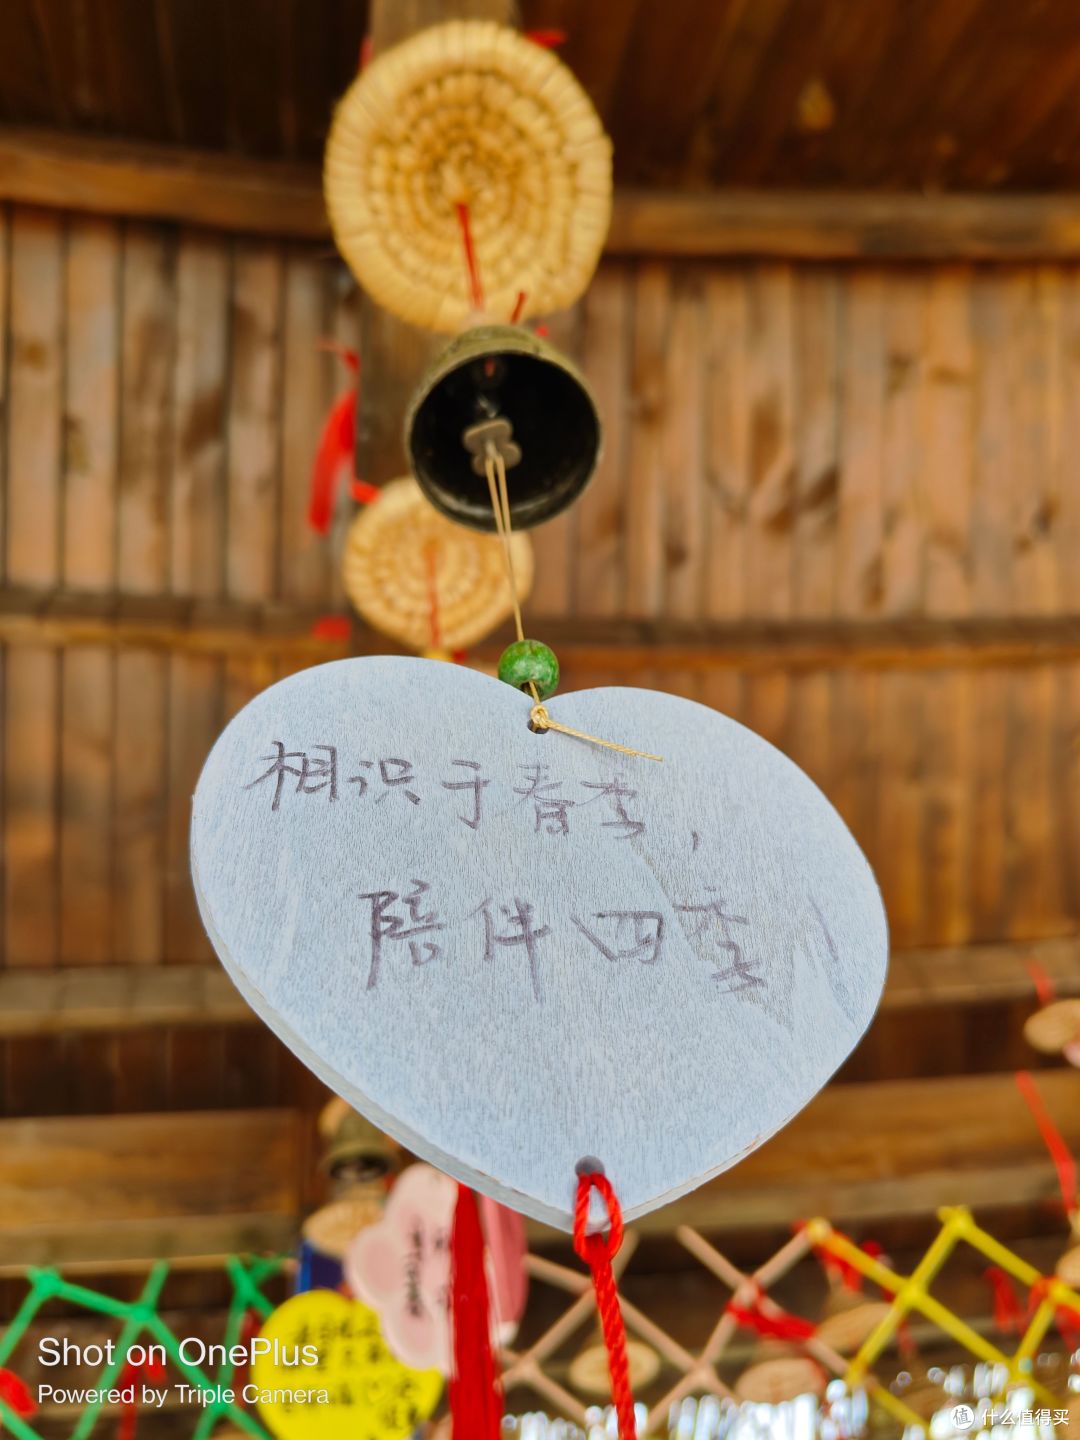 相识于春季，
陪伴四季！
Shot on OnePlus
Powered by Triple Camera
值 什么值得买